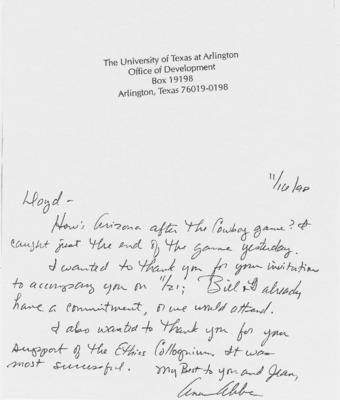 The University of Texas at Arlington
Office of Development
Box 19198
Arlington, Texas 76019-0198
11/16/90
Lloyd -
How's Arizona after the Cowboy game? I
caught just the end of the game yesterday.
I wanted to thank you for your invitation
to accompany you on 11/21; Bill & I already
have a commitment, or we would attend.
I also wanted to thank you for your
support of the Ethics Colloquium. It was
most successful. My Best to you and Jean,